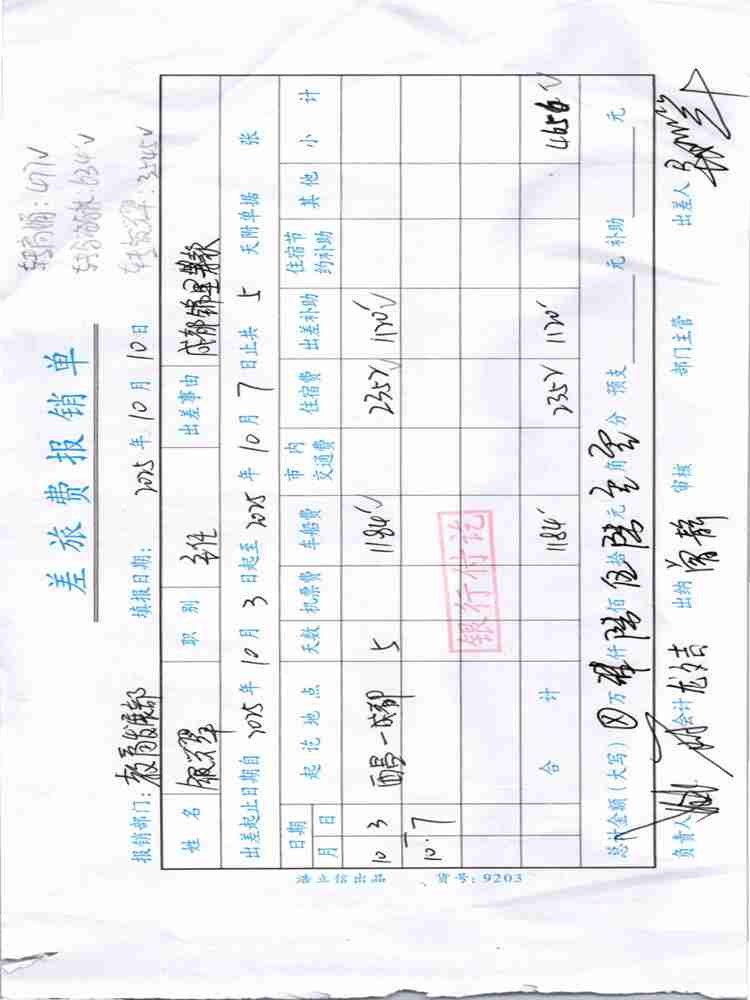 差旅费报销单
报销部门: 教育发展部 填报日期: 2025 年 10 月 10 日
姓名 职别 主任 出差事由 成都锦里
出差起止日期自 2025 年 10 月 3 日起至 2025 年 10 月 7 日止共 5 天附单据 张
日期 起讫地点 天数 机票费 车船费 市内交通费 住宿费 出差补助 住宿节约补助 其他 小计
月 日
10 3 西昌一成都 5 1184√ 2352√ 1120√
10.7
银行付讫
合计 1184 2352 1120 4656√
总计金额(大写) 0 万 肆 仟 陆 佰 伍 拾 陆 元 零 角 零 分 预支 元 补助 元
负责人 会计 出纳 审核 部门主管 出差人
浩立信出品 、货号: 9203